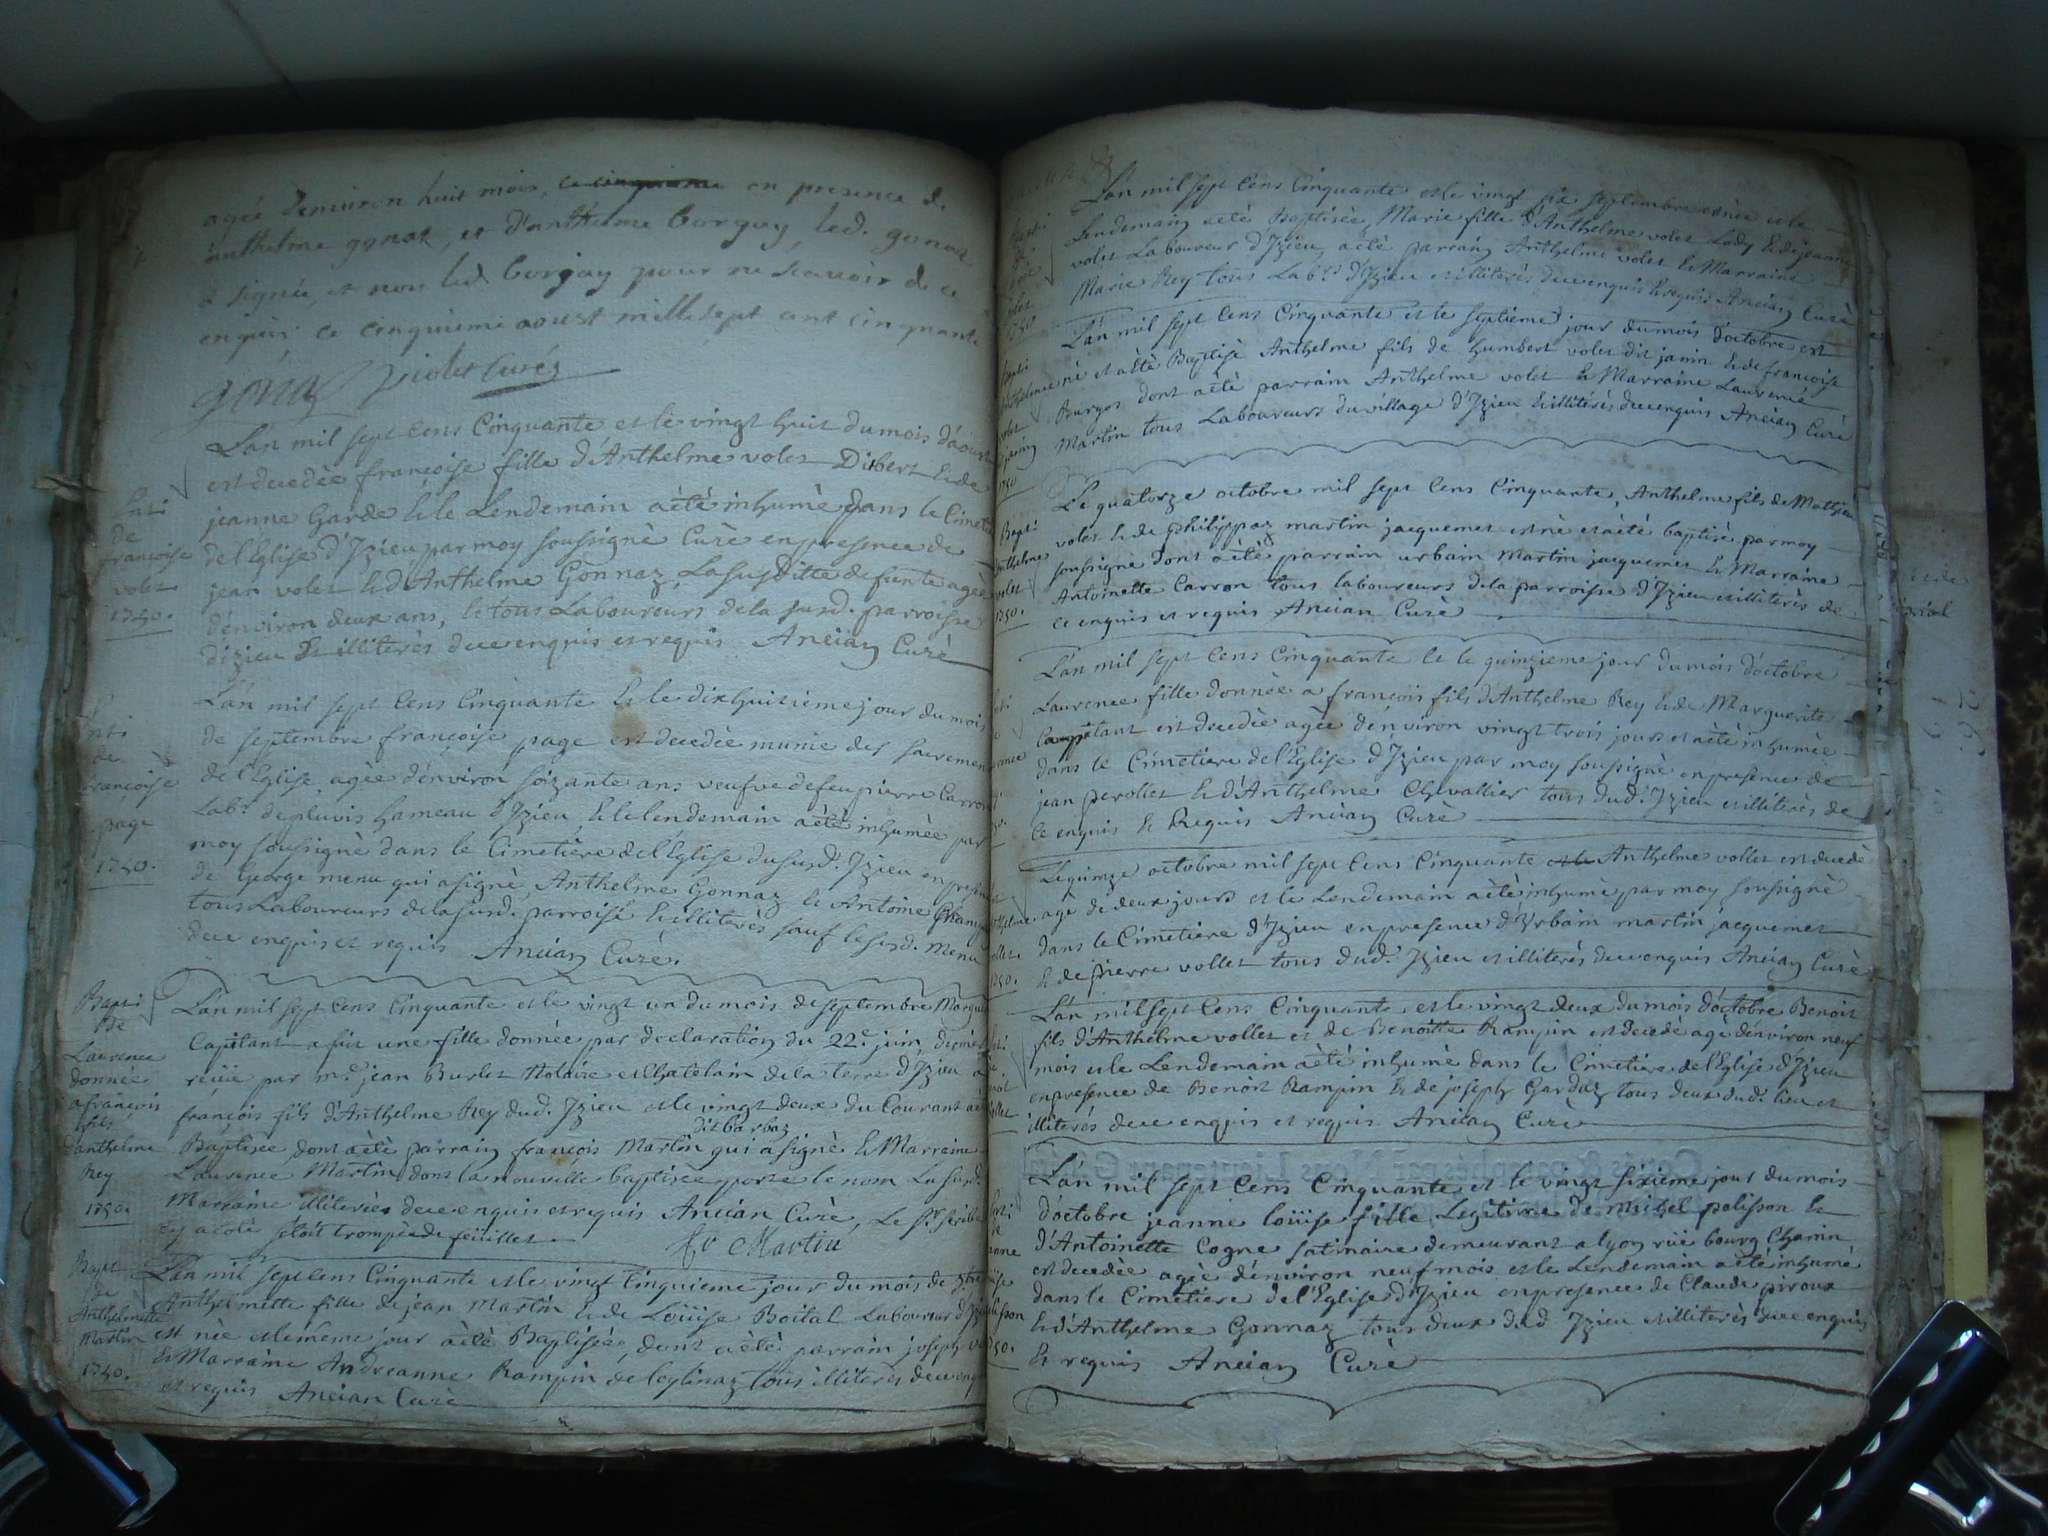 agée denviron huit mois, en presence de
anthelme gonat, et d'anthelme borgay, led. gonat
a signé, et non led. borjay pour ne scavoir de ce
enquis ce cinquieme aoust mille sept cent cinquante
gonaz violet curé
L'an mil sept cens Cinquante et le vingt huit du mois d'aoust
est decedée françoise fille d'Anthelme volet Dibert & de
jeanne Garde & le Lendemain a été inhumé dans le Cimet
de l'Eglise d'Izieu par moy soussigné Curé en presence de
jean volet & d'Anthelme Gonnaz, La susditte defunte agée
d'environ deux ans, & tous Laboureurs de la susd. parroisse
d'izieu & illiterés de ce enquis et requis Ancian Curé
de
françoise
volet
1750.
L'an mil sept Cens Cinquante & le dix huitieme jour du mois
de septembre françoise page est decedée munie des sacremen
de l'Eglise agée d'environ soizante ans veufve de feu pierre Carron
Labr. de pluvis hameau d'Izieu & le lendemain a été inhumée par
moy soussigné dans le Cimetiere de l'Eglise du susd. Izieu en presence
de George menu qui a signé, Anthelme Gonnaz & Antoine
tous Laboureurs de la susd. parroisse & illiterés sauf le susd. menu
de ce enquis et requis Ancian Curé.
de
françoise
page
1750.
L'an mil sept Cens Cinquante et le vingt un du mois de septembre Margue
Capitant a fait une fille donnée par declaration du 22e. juin dernier
reüe par me. jean Burlet Notaire et Chatelain de la terre d'Izieu a
françois fils d'Anthelme Rey dud. Izieu et le vingt deux du Courant a eté
dit barbaz
Baptisée dont a été parrain françois Martin qui a signé & Marraine
Laurence Martin dont la nouvelle baptisée porte le nom La susd.
Marraine illiterée de ce enquis et requis Ancian Curé, Le sr. scribe
cy a coté s'etoit trompé de feüillet.
fr Martin
Bapt.
de
Laurence
donnée
a françois
fils
d'anthelme
Rey
1750.
L'an mil sept cens Cinquante et le vingt Cinquieme jour du mois de 7bre
Anthelmette fille de jean Martin & de Loüise Boital Laboureur d'Izi
est née et le meme jour a été Baptisée, dont a été parrain joseph
& Marraine Andreanne Rampin de leglinaz tous illiterés de ce enq
et requis Ancian Curé
Bapt
de
Anthelmette
Martin
1750.
L'an mil sept Cens Cinquante et le vingt six septembre est née et le
Lendemain a été Baptisée Marie fille d'Anthelme volet Lody & de jeanne
volet Laboureur d'Izieu, a été parrain Anthelme volet & Marraine
Marie Rey tous Labrs. d'Izieu et illiterés de ce enquis & requis Ancian Curé
L'an mil sept Cens Cinquante et le septieme jour du mois d'octobre est
né et a été Baptisé Anthelme fils de humbert volet dit janin & de françoise
Burgos dont a été parrain Anthelme volet & Marraine Laurence
Martin tous Laboureurs du village d'Izieu & illiterés de ce enquis Ancian Curé
Le quatorze octobre mil sept Cens Cinquante, Anthelme fils de Mathieu
volet & de philippaz martin jacquemet est né et a été baptisé par moy
soussigné dont a été parrain urbain Martin jacquemet & Marraine
Antoinette Carron tous laboureurs de la parroisse d'Izieu et illiterés de
ce enquis et requis Ancian Curé
Bapt.
Anthelme
volet
1750.
L'an mil sept Cens Cinquante & le quinzieme jour du mois d'octobre
Laurence fille donnée a françois fils d'Anthelme Rey & de Marguerite
Capitant est decedée agée d'environ vingt trois jours et a été inhumée
dans le Cimetiere de l'Eglise d'Izieu par moy soussigné en presence de
jean perollet & d'Anthelme Chevallier tous dud. Izieu et illiterés de
ce enquis & Requis Ancian Curé
Le quinze octobre mil sept Cens Cinquante et le Anthelme vollet est decedé
agé de deux jours et le Lendemain a été inhumé par moy soussigné
dans le Cimetiere d'Izieu en presence d'Urbain martin jacquemet
& de pierre vollet tous dud. Izieu et illiterés de ce enquis Ancian Curé
L'an mil sept Cens Cinquante et le vingt deux du mois d'octobre Benoit
fils d'Anthelme vollet et de Benoitte Rampin est decedé agé d'environ neuf
mois et le Lendemain a été inhumé dans le Cimetiere de l'Eglise d'Izieu
en presence de Benoit Rampin & de joseph Gardaz tous deux dud. lieu et
illiterés de ce enquis et requis Ancian Curé
L'an mil sept Cens Cinquante et le vingt sixieme jour du mois
d'octobre jeanne loüise fille Legitime de michel polisson &
d'Antoinette Cogne satinaire demeurant a lyon rüe bourg Chanin
est decedée agée d'environ neuf mois et le Lendemain a été inhumé
dans le Cimetiere de l'Eglise d'Izieu en presence de Claude piroux
& d'Anthelme Gonnaz tous deux dud Izieu et illiterés de ce enquis
& requis Ancian Curé